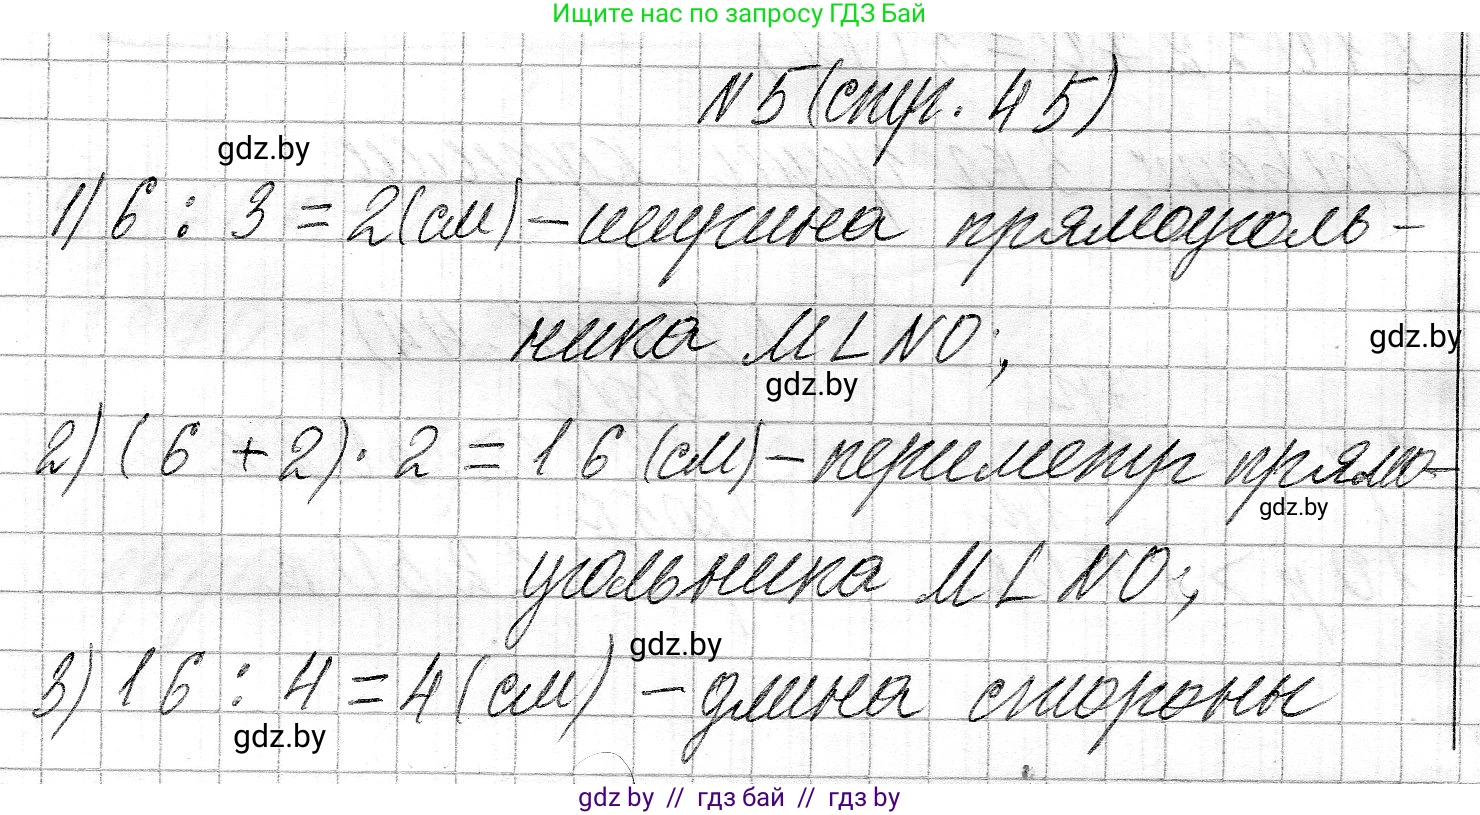 Ищите нас по запросу ГДЗ Бай
N 5 (стр. 45)
gdz.by
1) 6 : 3 = 2 (см) – ширина прямоуголь-
ника MLNO;
gdz.by
gdz.by
2) (6 + 2) · 2 = 16 (см) – периметр прямо-
gdz.by
угольника MLNO;
gdz.by
3) 16 : 4 = 4 (см) – длина стороны
gdz.by
gdz by // гдз бай // гдз by